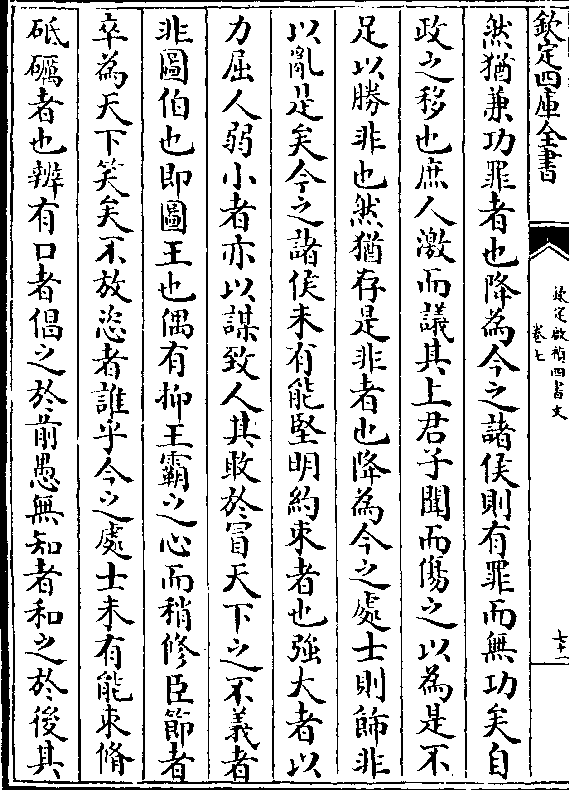 欽定四庫全書
欽定啟禎四書文
卷七
七十一
然猶兼功罪者也降為今之諸侯則有罪而無功矣自
政之移也庶人激而議其上君子聞而傷之以為是不
足以勝非也然猶存是非者也降為今之處士則飾非
以亂是矣今之諸侯未有能堅明約束者也強大者以
力屈人弱小者亦以謀致人其敢於冒天下之不義者
非圖伯也即圖王也偶有抑王霸之心而稍修臣節者
卒為天下笑矣不放恣者誰乎今之處士未有能束脩
砥礪者也辨有口者倡之於前愚無知者和之於後其